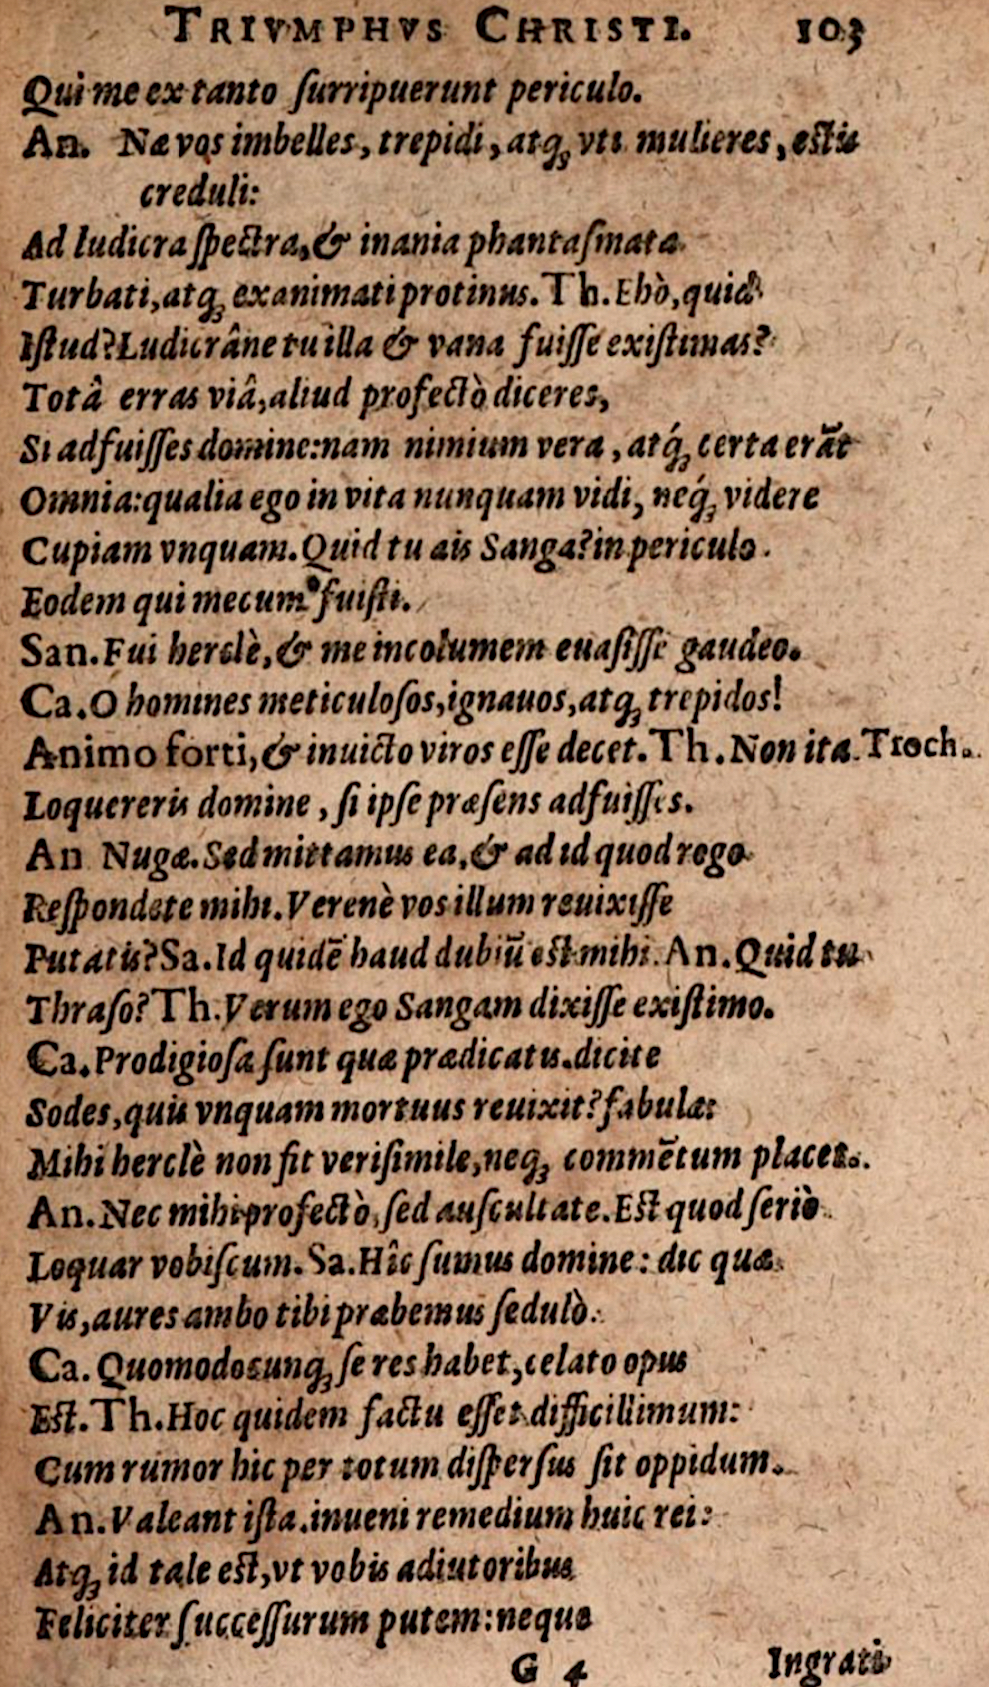 TRIVMPHVS CHRISTI. 103
Qui me ex tanto ſurripuerunt periculo.
An. Næ vos imbelles, trepidi, atq; vti mulieres, eſtis
creduli:
Ad ludicra ſpectra, & inania phantaſmata
Turbati, atq; exanimati protinus. Th. Ehò, quid
Iſtud? Ludicrâne tu illa & vana fuiſſe exiſtimas?
Totâ erras viâ, aliud profectò diceres,
Si adfuiſſes domine: nam nimium vera, atq́; certa erãt
Omnia: qualia ego in vita nunquam vidi, neq́; videre
Cupiam vnquam. Quid tu ais Sanga? in periculo
Eodem qui mecum fuiſti.
San. Fui herclè, & me incolumem euaſiſſe gaudeo.
Ca. O homines meticuloſos, ignauos, atq; trepidos!
Animo forti, & inuicto viros eſſe decet. Th. Non ita. Troch.
Loquereris domine, ſi ipſe præſens adfuiſſes.
An Nugæ. Sed mittamus ea, & ad id quod rogo
Reſpondete mihi. Verenè vos illum reuixiſſe
Putatis? Sa. Id quidẽ haud dubiũ eſt mihi. An. Quid tu
Thraſo? Th. Verum ego Sangam dixiſſe exiſtimo.
Ca. Prodigioſa ſunt quæ prædicatis. dicite
Sodes, quis vnquam mortuus reuixit? fabulæ:
Mihi herclè non fit veriſimile, neq; commẽtum placet.
An. Nec mihi profectò, ſed auſcultate. Eſt quod ſeriò
Loquar vobiſcum. Sa. Hîc ſumus domine: dic quæ
Vis, aures ambo tibi præbemus ſedulò.
Ca. Quomodocunq; ſe res habet, celato opus
Eſt. Th. Hoc quidem factu eſſet difficillimum:
Cum rumor hic per totum diſperſus ſit oppidum.
An. Valeant iſta. inueni remedium huic rei:
Atq; id tale eſt, vt vobis adiutoribus
Feliciter ſucceſſurum putem: neque
G 4 Ingrati